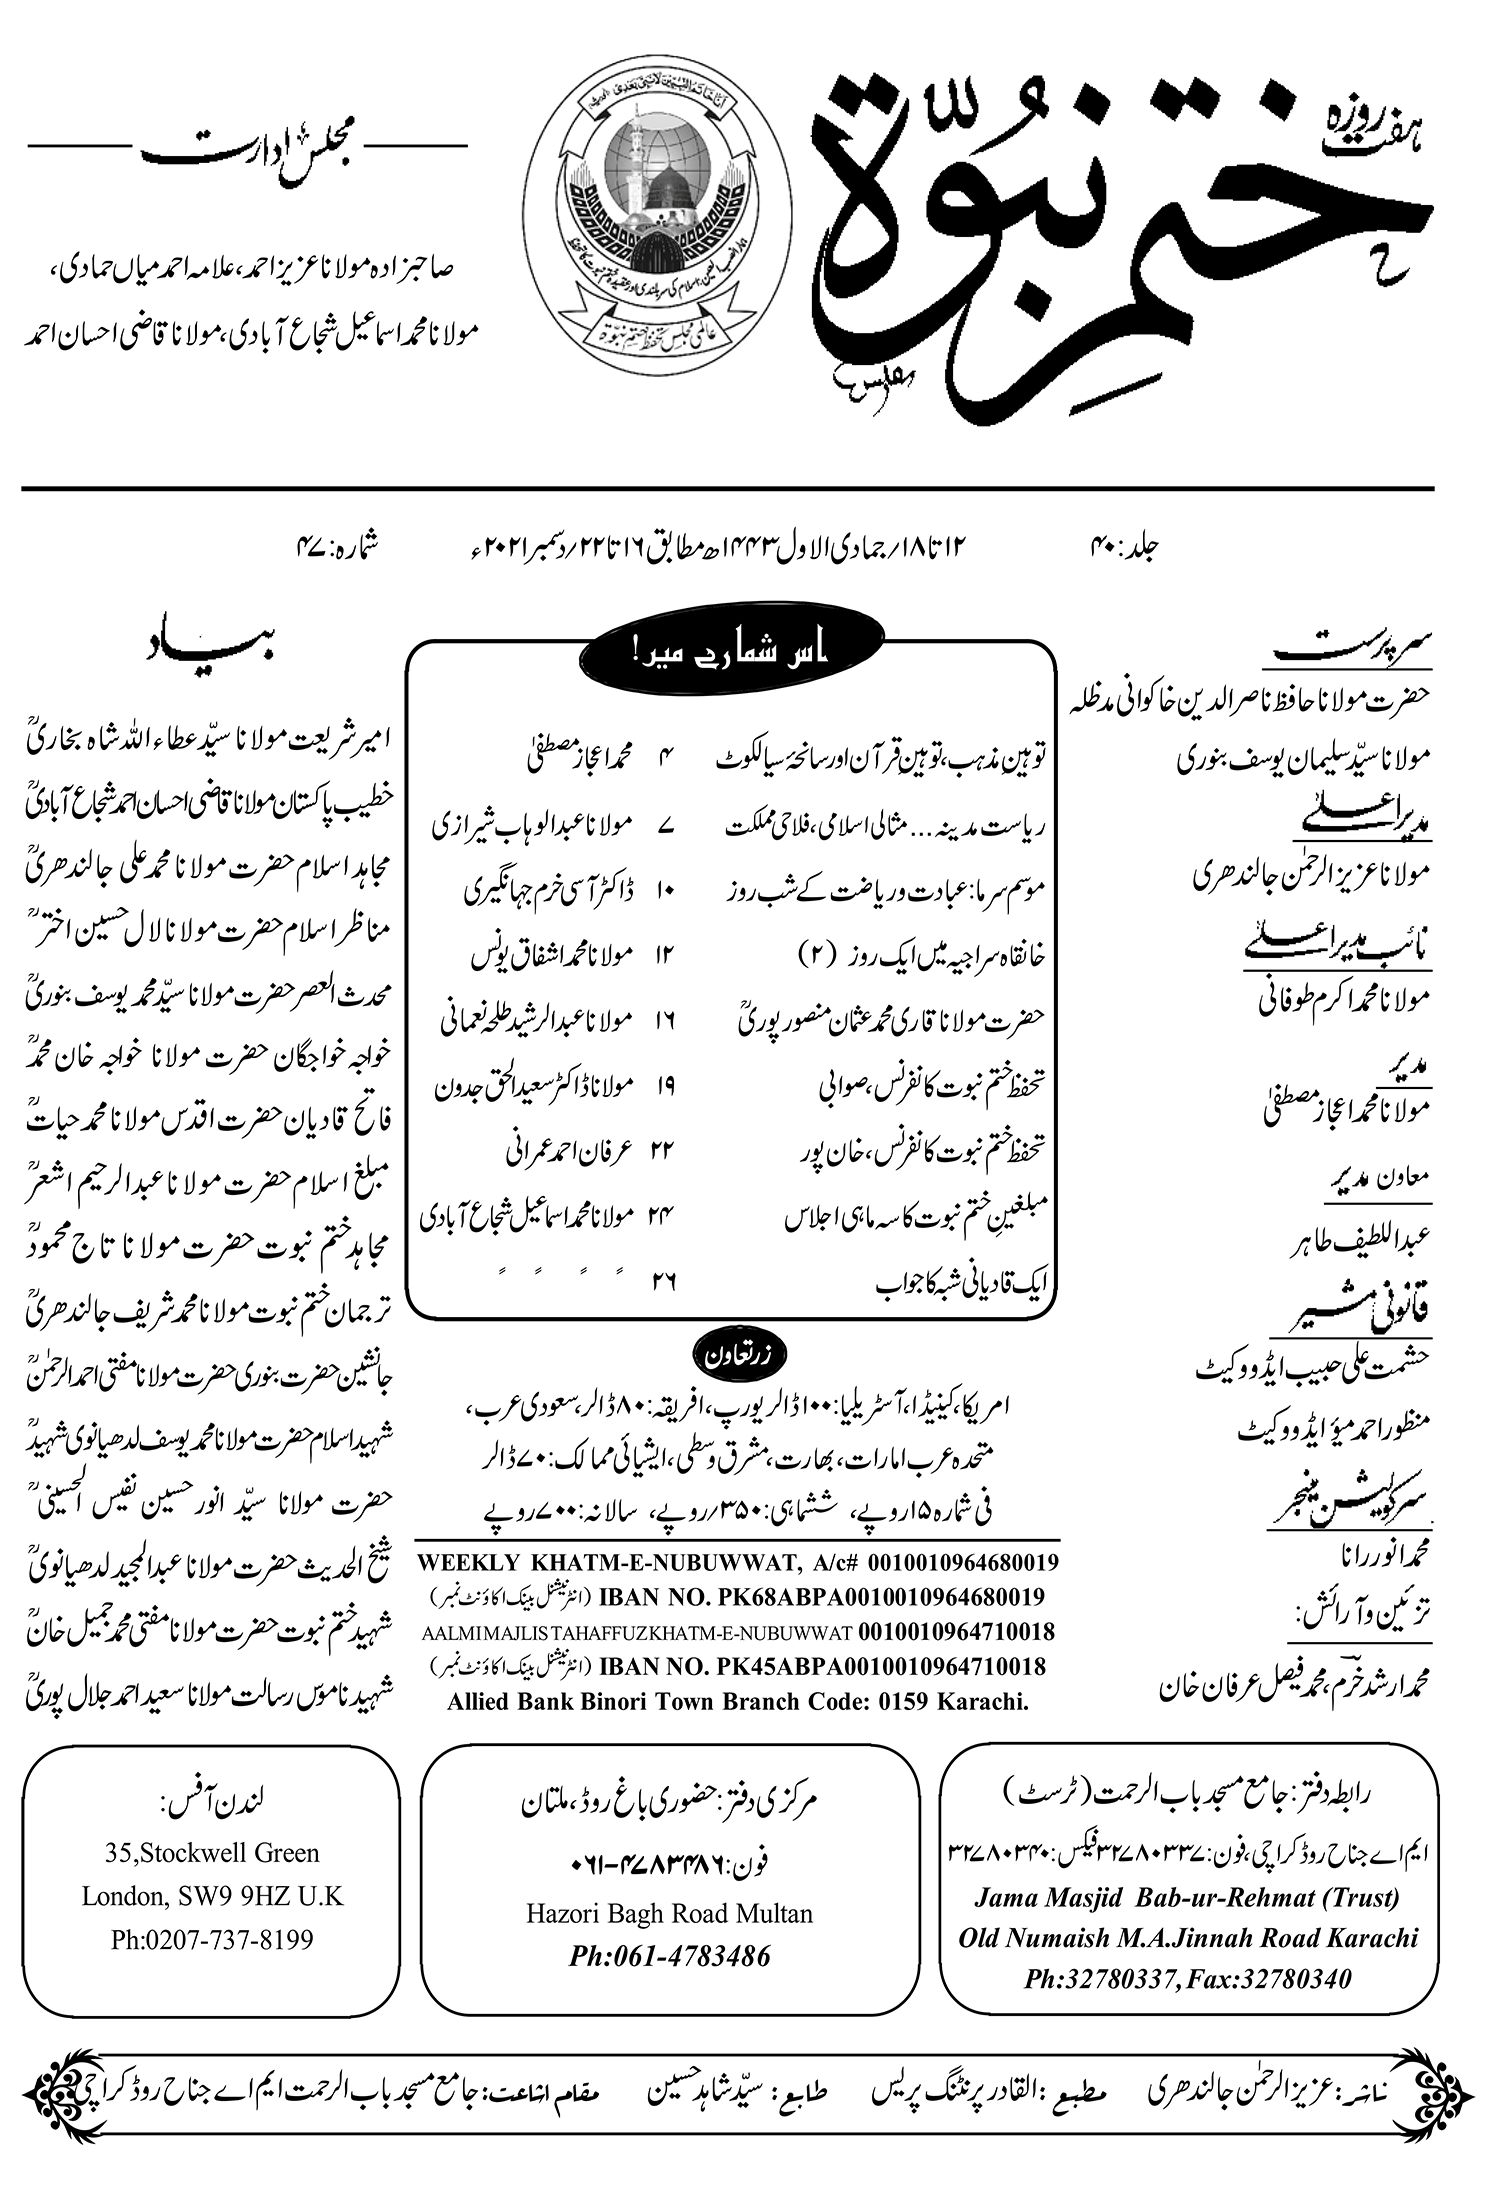 ہفت روزہ
ختم نبوّۃ
مجلس ادارت
صاحبزادہ مولانا عزیز احمد، علامہ احمد میاں حمادی،
مولانا محمد اسماعیل شجاع آبادی، مولانا قاضی احسان احمد
عالمی مجلس تحفظ ختم نبوۃ
جلد: ۴۰
۱۲ تا ۱۸/ جمادی الاول ۱۴۴۳ھ مطابق ۱۶ تا ۲۲/ دسمبر ۲۰۲۱ء
شمارہ: ۴۷
سرپرست
حضرت مولانا حافظ ناصر الدین خاکوانی مدظلہ
مولانا سیّد سلیمان یوسف بنوری
مدیر اعلےٰ
مولانا عزیز الرحمٰن جالندھری
نائب مدیر اعلےٰ
مولانا محمد اکرم طوفانی
مدیر
مولانا محمد اعجاز مصطفیٰ
معاون مدیر
عبد اللطیف طاہر
قانونی مشیر
حشمت علی حبیب ایڈووکیٹ
منظور احمد میؤ ایڈووکیٹ
سرکولیشن منیجر
محمد انور رانا
تزئین و آرائش:
محمد ارشد خرم، محمد فیصل عرفان خان
اس شمارے میں!
توہینِ مذہب، توہینِ قرآن اور سانحۂ سیالکوٹ ۴ محمد اعجاز مصطفیٰ
ریاست مدینہ... مثالی اسلامی، فلاحی مملکت ۷ مولانا عبدالوہاب شیرازی
موسم سرما: عبادت و ریاضت کے شب روز ۱۰ ڈاکٹر آسی خرم جہانگیری
خانقاہ سراجیہ میں ایک روز (۲) ۱۲ مولانا محمد اشفاق یونس
حضرت مولانا قاری محمد عثمان منصور پوریؒ ۱۶ مولانا عبدالرشید طلحہ نعمانی
تحفظ ختم نبوت کانفرنس، صوابی ۱۹ مولانا ڈاکٹر سعید الحق جدون
تحفظ ختم نبوت کانفرنس، خان پور ۲۲ عرفان احمد عمرانی
مبلغینِ ختم نبوت کا سہ ماہی اجلاس ۲۴ مولانا محمد اسماعیل شجاع آبادی
ایک قادیانی شبہ کا جواب ۲۶ ؍ ؍ ؍ ؍
زر تعاون
امریکا، کینیڈا، آسٹریلیا: ۱۰۰ ڈالر یورپ، افریقہ: ۸۰ ڈالر، سعودی عرب،
متحدہ عرب امارات، بھارت، مشرق وسطی، ایشیائی ممالک: ۷۰ ڈالر
فی شمارہ ۱۵ روپے، ششماہی: ۳۵۰/ روپے، سالانہ: ۷۰۰ روپے
WEEKLY KHATM-E-NUBUWWAT, A/c# 0010010964680019
IBAN NO. PK68ABPA0010010964680019 (انٹرنیشنل بینک اکاؤنٹ نمبر)
AALMIMAJLISTAHAFFUZKHATM-E-NUBUWWAT 0010010964710018
IBAN NO. PK45ABPA0010010964710018 (انٹرنیشنل بینک اکاؤنٹ نمبر)
Allied Bank Binori Town Branch Code: 0159 Karachi.
بیاد
امیر شریعت مولانا سیّد عطاء اللہ شاہ بخاریؒ
خطیب پاکستان مولانا قاضی احسان احمد شجاع آبادیؒ
مجاہد اسلام حضرت مولانا محمد علی جالندھریؒ
مناظر اسلام حضرت مولانا لال حسین اخترؒ
محدث العصر حضرت مولانا سیّد محمد یوسف بنوریؒ
خواجہ خواجگان حضرت مولانا خواجہ خان محمدؒ
فاتح قادیان حضرت اقدس مولانا محمد حیاتؒ
مبلغ اسلام حضرت مولانا عبدالرحیم اشعرؒ
مجاہد ختم نبوت حضرت مولانا تاج محمودؒ
ترجمان ختم نبوت مولانا محمد شریف جالندھریؒ
جانشین حضرت بنوری حضرت مولانا مفتی احمد الرحمٰنؒ
شہید اسلام حضرت مولانا محمد یوسف لدھیانوی شہیدؒ
حضرت مولانا سیّد انور حسین نفیس الحسینیؒ
شیخ الحدیث حضرت مولانا عبدالمجید لدھیانویؒ
شہید ختم نبوت حضرت مولانا مفتی محمد جمیل خانؒ
شہید ناموس رسالت مولانا سعید احمد جلال پوریؒ
رابطہ دفتر: جامع مسجد باب الرحمت (ٹرسٹ)
ایم اے جناح روڈ کراچی، فون: ۳۲۷۸۰۳۳۷ فیکس: ۳۲۷۸۰۳۴۰
Jama Masjid Bab-ur-Rehmat (Trust)
Old Numaish M.A.Jinnah Road Karachi
Ph:32780337, Fax:32780340
مرکزی دفتر: حضوری باغ روڈ، ملتان
فون: ۰۶۱-۴۷۸۳۴۸۶
Hazori Bagh Road Multan
Ph:061-4783486
لندن آفس:
35,Stockwell Green
London, SW9 9HZ U.K
Ph:0207-737-8199
ناشر: عزیز الرحمٰن جالندھری مطبع: القادر پرنٹنگ پریس طابع: سیّد شاہد حسین مقام اشاعت: جامع مسجد باب الرحمت ایم اے جناح روڈ کراچی